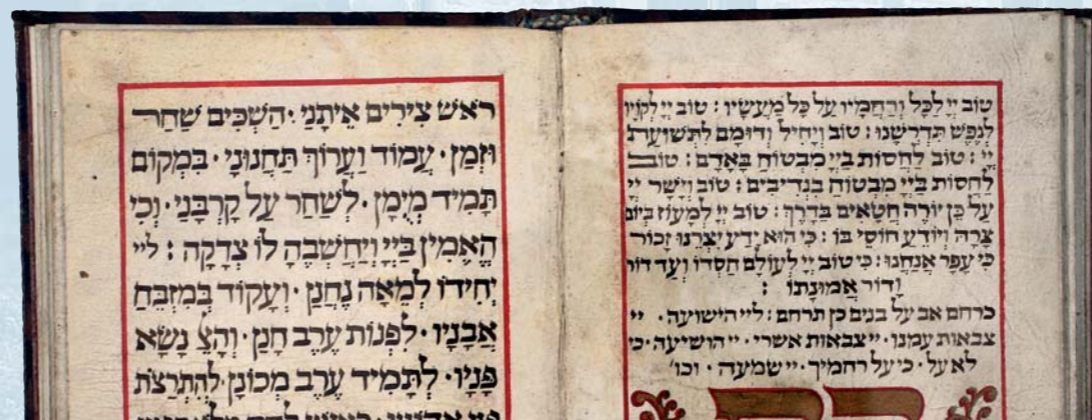 טוֹב יְיָ לַכֹּל וְרַחֲמָיו עַל כָּל מַעֲשָׂיו : טוֹב יְיָ לְקֹוָיו
לְנֶפֶשׁ תִּדְרְשֶׁנּוּ : טוֹב וְיָחִיל וְדוּמָם לִתְשׁוּעַת
יְיָ : טוֹב לַחֲסוֹת בַּיְיָ מִבְּטוֹחַ בָּאָדָם : טוֹב
לַחֲסוֹת בַּיְיָ מִבְּטוֹחַ בִּנְדִיבִים : טוֹב וְיָשָׁר יְיָ
עַל כֵּן יוֹרֶה חַטָּאִים בַּדָּרֶךְ : טוֹב יְיָ לְמָעוֹז בְּיוֹם
צָרָה וְיוֹדֵעַ חוֹסֵי בוֹ : כִּי הוּא יָדַע יִצְרֵנוּ זָכוּר
כִּי עָפָר אֲנָחְנוּ : כִּי טוֹב יְיָ לְעוֹלָם חַסְדּוֹ וְעַד דּוֹר
וָדוֹר אֱמוּנָתוֹ :
כרחם אב על בנים כן תרחם : ליי הישועה · יי
צבאות עמנו · יי צבאות אשרי · יי הושיעה · כי
לא על · כי על רחמיך · יי שמעה · וכו'
רֹאשׁ צִירִים אֵיתָנַי · הַשְׁכִּים שַׁחַר
וּזְמַן · עֲמוֹד וַעֲרוֹךְ תַּחֲנוּנַי · בִּמְקוֹם
תָּמִיד מְיֻמָּן · לְשַׁחֵר עַל קָרְבָּנַי · וְכִי
הֶאֱמִין בַּיְיָ וְיַחְשְׁבֶהָ לוֹ צְדָקָה : ליי
יְחִידוֹ לְמֵאָה נֶחֱנַן · וְעָקוֹד בְּמִזְבַּח
אֲבָנָיו · לִפְנוֹת עֶרֶב חָנַן · נָשָׂא
פָּנָיו · לְתָמִיד עֶרֶב מְכוֹנָן · לְהִתְרַצּוֹת